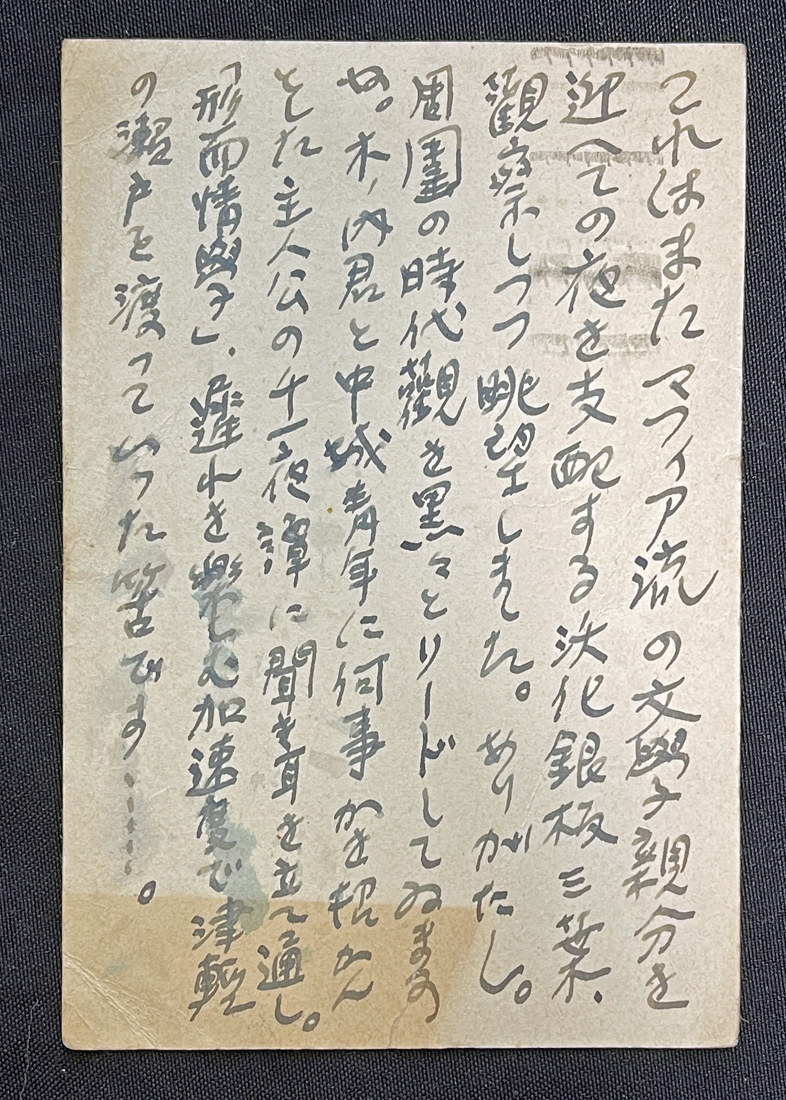 これはまたマフィア流の文學親分を
迎へての夜を支配する沃化銀板三葉、
觀察しつつ眺望しました。ありがたし。
周圍の時代觀を黒々とリードしてゐますの
ね。木ノ内君と中城青年に何事かを招かん
とした主人公の千一夜譚に聞き耳を立て通し。
「形而情學」、遲れを樂しむ加速度で津輕
の瀬戸を渡っていった筈です……。